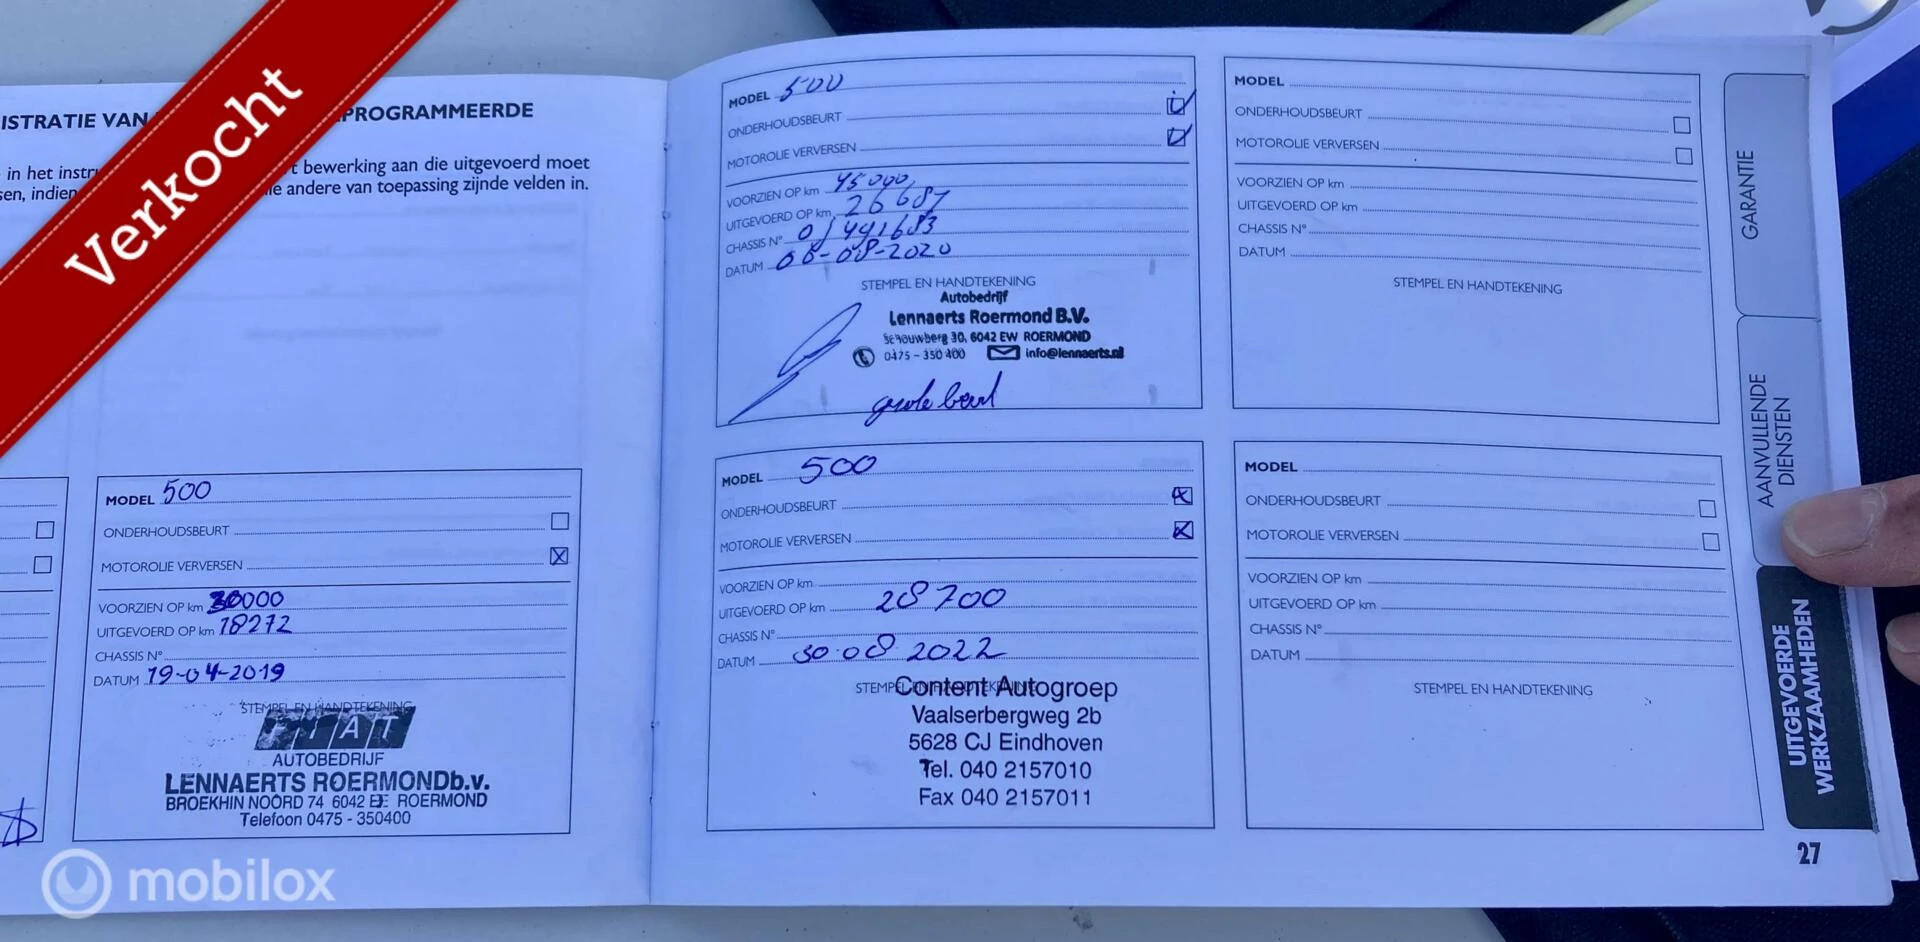 Verkocht
ISTRATIE VAN
PROGRAMMEERDE
in het instr
t bewerking aan die uitgevoerd moet
sen, indien
andere van toepassing zijnde velden in.
MODEL 500
ONDERHOUDSBEURT
MOTOROLIE VERVERSEN
VOORZIEN OP km 30000
UITGEVOERD OP km 18272
CHASSIS N°
DATUM 19-04-2019
STEMPEL EN HANDTEKENING
FIAT
AUTOBEDRIJF
LENNAERTS ROERMOND b.v.
BROEKHIN NOORD 74 6042 EE ROERMOND
Telefoon 0475 - 350400
MODEL 500
ONDERHOUDSBEURT
MOTOROLIE VERVERSEN
VOORZIEN OP km 45000
UITGEVOERD OP km 26687
CHASSIS N° 01441683
DATUM 08-08-2020
STEMPEL EN HANDTEKENING
Autobedrijf
Lennaerts Roermond B.V.
Schouwberg 30, 6042 EW ROERMOND
0475 - 350 400 info@lennaerts.nl
grote beurt
MODEL 500
ONDERHOUDSBEURT
MOTOROLIE VERVERSEN
VOORZIEN OP km
UITGEVOERD OP km 28700
CHASSIS N°
DATUM 30-08 2022
STEMPEL EN HANDTEKENING
Content Autogroep
Vaalserbergweg 2b
5628 CJ Eindhoven
Tel. 040 2157010
Fax 040 2157011
MODEL
ONDERHOUDSBEURT
MOTOROLIE VERVERSEN
VOORZIEN OP km
UITGEVOERD OP km
CHASSIS N°
DATUM
STEMPEL EN HANDTEKENING
MODEL
ONDERHOUDSBEURT
MOTOROLIE VERVERSEN
VOORZIEN OP km
UITGEVOERD OP km
CHASSIS N°
DATUM
STEMPEL EN HANDTEKENING
GARANTIE
AANVULLENDE
DIENSTEN
UITGEVOERDE
WERKZAAMHEDEN
27
mobilox